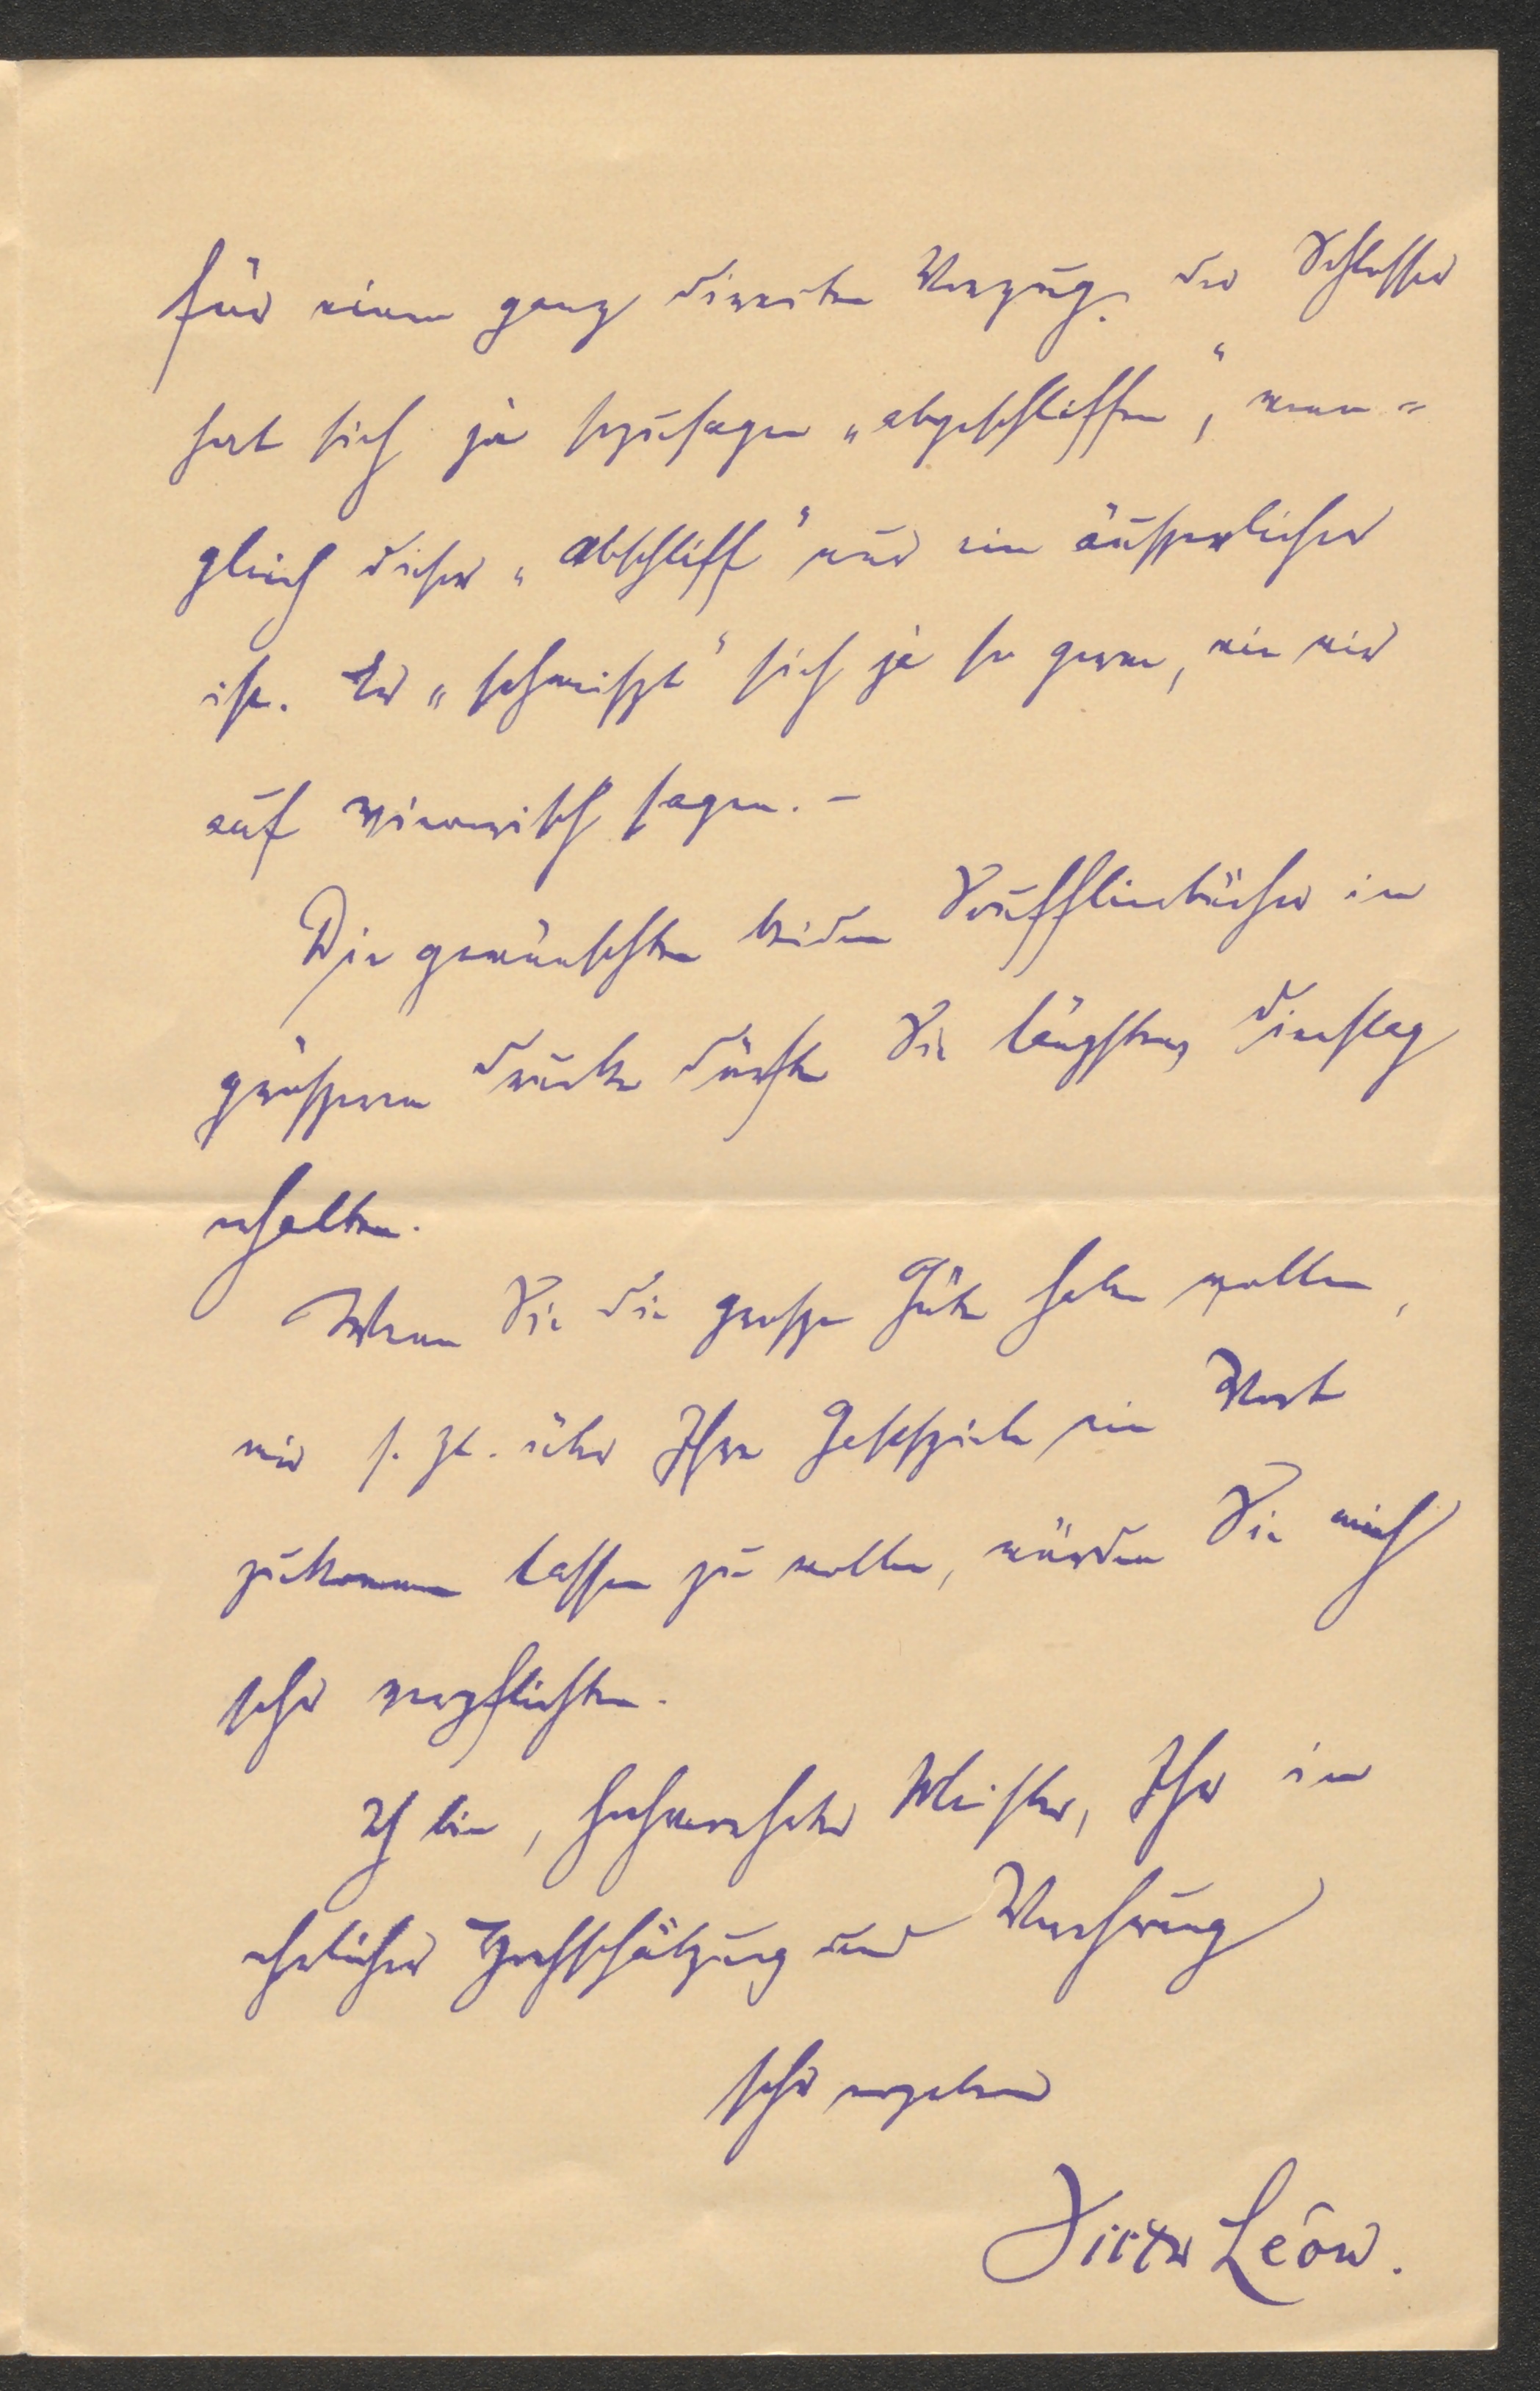 für einen ganz direkten Vorzug. Der Schlosser
hat sich ja sozusagen „abgeschliffen“, wenn-
gleich dieser „Abschliff“ nur ein äusserlicher
ist. Er „schmeisst“ sich ja so gerne, wie wir
auf wienerisch sagen. –
Die gewünschten beiden Soufflierbücher in
grösserem Drucke dürften Sie längstens Dienstag
erhalten.
Wenn Sie die grosse Güte haben wollen,
mir s. Zt. über Ihre Gastspiele ein Wort
zukommen lassen zu wollen, würden Sie mich
sehr verpflichten.
Ich bin, hochverehrter Meister, Ihr in
ehrlicher Hochschätzung und Verehrung
sehr ergebener
Victor Léon.